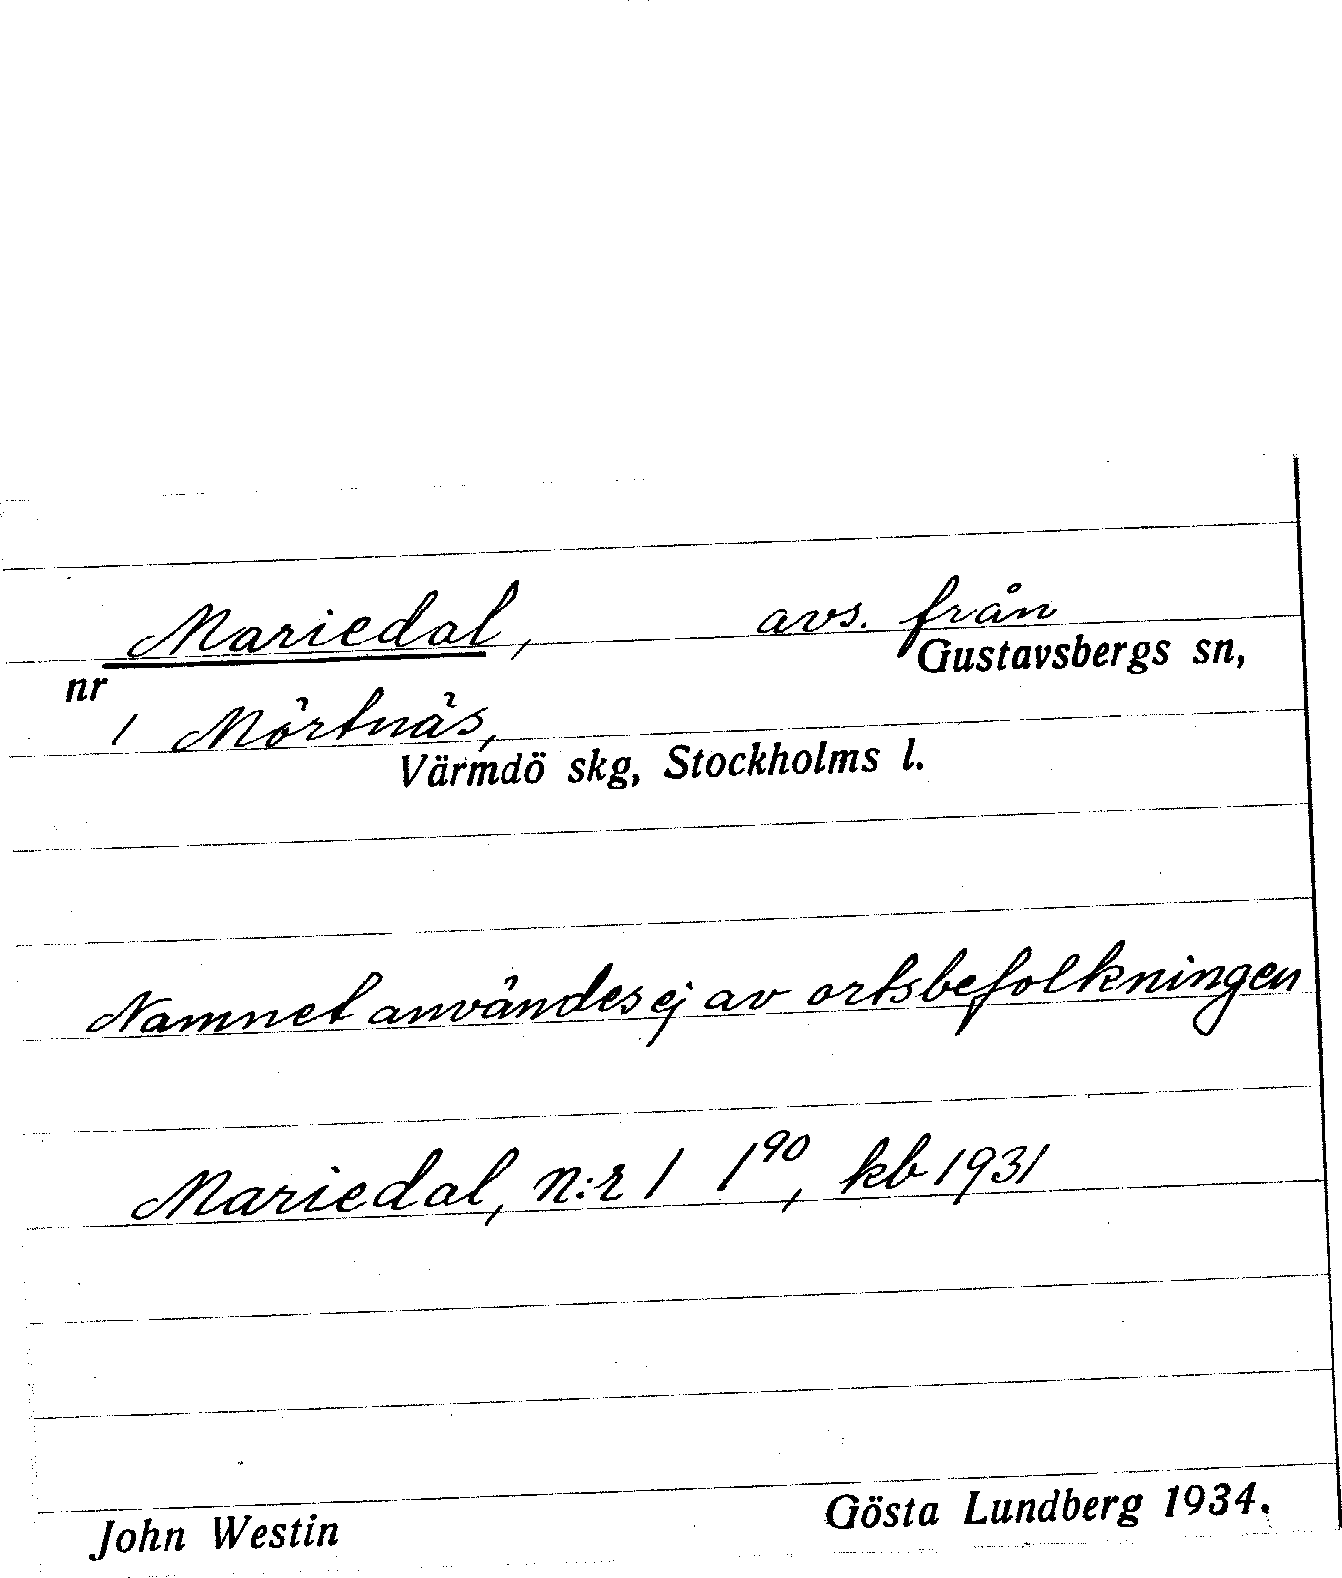 Mariedal, avs. från
Gustavsbergs sn,
nr
1 Mörtnäs,
Värmdö skg, Stockholms l.
Namnet användes ej av ortsbefolkningen
Mariedal, n:r 1 1⁹⁰, kb 1931
John Westin Gösta Lundberg 1934.